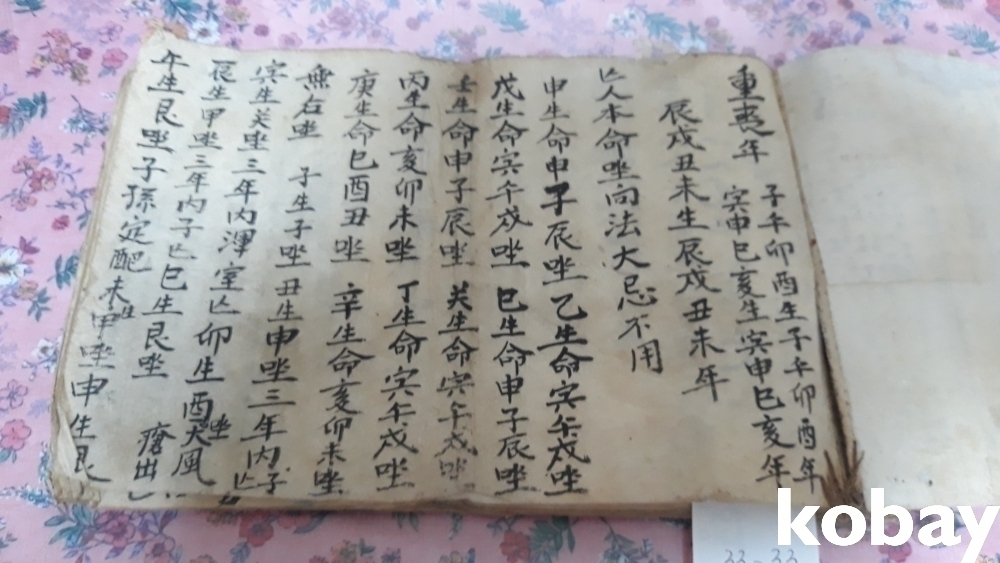 重喪年 子午卯酉生子午卯酉年
寅申巳亥生寅申巳亥年
辰戌丑未生辰戌丑未年
亡人本命坐向法大忌不用
申生命申子辰唑 乙生命寅午戌唑
戊生命寅午戌唑 巳生命申子辰唑
壬生命申子辰唑 癸生命寅午戌唑
丙生命亥卯未唑 丁生命寅午戌唑
庚生命巳酉丑唑 辛生命亥卯未唑
無右唑 子生子唑 丑生申唑三年內子亡
寅生癸唑三年內渾室亡 卯生酉唑
辰生甲唑三年內子亡 巳生艮唑 大風瘡出
午生艮唑子孫定配 未生甲唑 申生艮
kobay
33-33